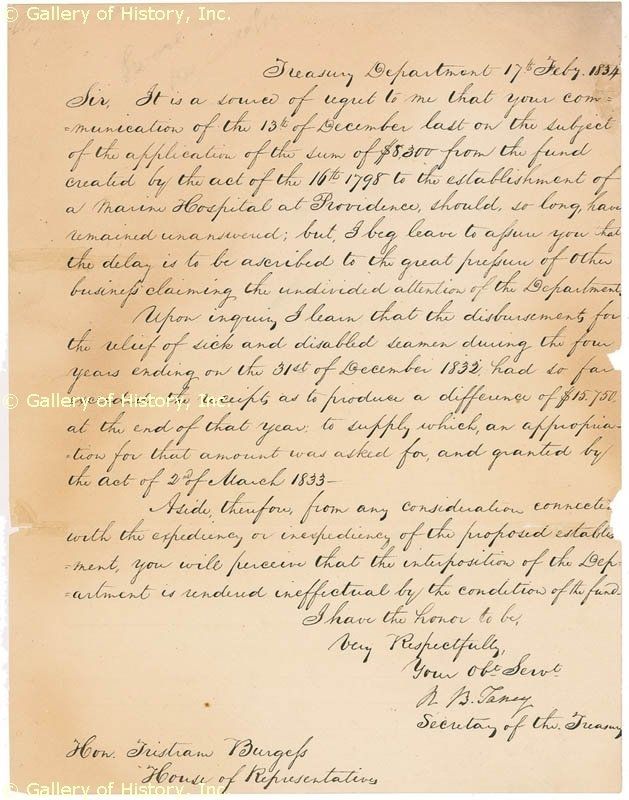 © Gallery of History, Inc.
Treasury Department 17th Feby. 1834
Sir, It is a source of regret to me that your com-
=munication of the 13th of December last on the subject
of the application of the sum of $8,300 from the fund
created by the act of the 16th 1798 to the establishment of
a Marine Hospital at Providence, should, so long, have
remained unanswered; but, I beg leave to assure you that
the delay is to be ascribed to the great pressure of other
business claiming the undivided attention of the Department.
Upon inquiry I learn that the disbursements for
the relief of sick and disabled seamen during the four
years ending on the 31st of December 1832, had so far
© Gallery of History, Inc.
exceeded the receipts as to produce a difference of $15,750
at the end of that year; to supply which, an appropria-
=tion for that amount was asked for, and granted by
the act of 2d of March 1833—
Aside, therefore, from any consideration connected
with the expediency or inexpediency of the proposed establish-
=ment, you will perceive that the interposition of the Dep-
=artment is rendered ineffectual by the condition of the fund.
I have the honor to be,
Very Respectfully,
Your Obt. Servt.
R. B. Taney
Secretary of the Treasury
Hon. Tristram Burgess
House of Representatives
© Gallery of History, Inc.